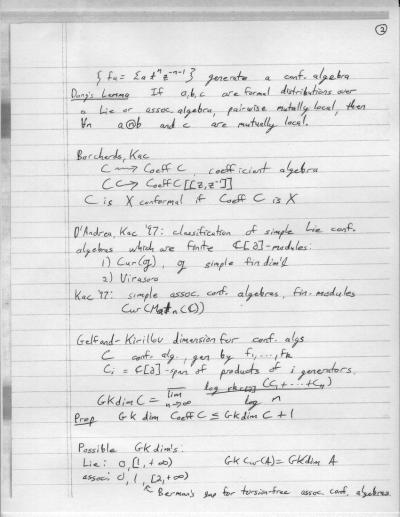 2
{ fa = Σa tⁿ z⁻ⁿ⁻¹ } generate a conf. algebra
Dong's Lemma If a,b,c are formal distributions over
a Lie or assoc. algebra, pairwise mutally local, then
∀n a(n)b and c are mutually local.
Borcherds, Kac
C ⟿ Coeff C, coefficient algebra
C ↪ Coeff C[[z,z⁻¹]]
C is X conformal if Coeff C is X
D'Andrea, Kac '97: classification of simple Lie conf.
algebras which are finite ℂ[∂]-modules:
1) Cur(g), g simple fin dim'l
2) Virasoro
Kac '97: simple assoc. conf. algebras, fin. modules
Cur(Matn(ℂ))
Gelfand-Kirillov dimension for conf. algs
C conf. alg., gen by f₁,...,fk
Ci = ℂ[∂]-span of products of i generators.
GKdim C = lim n→∞ log rk (C₁+...+Cn) / log n
Prop GKdim Coeff C ≤ GKdim C + 1
Possible GKdim's:
Lie: 0, [1,+∞) GK Cur(A) = GKdim A
assoc: 0, 1, [2,+∞)
Berman's gap for torsion-free assoc. conf. algebras